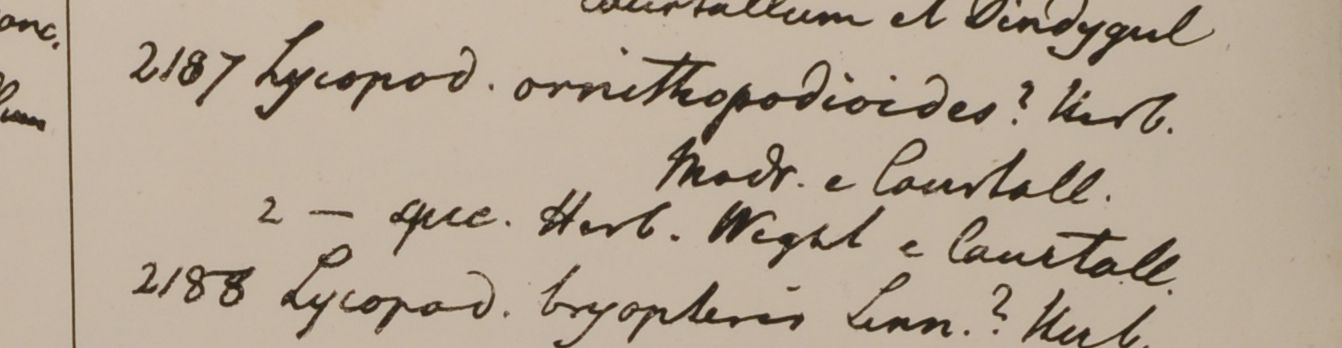 onc.
Courtallum et Dindygul
2187 Lycopod. ornithopodioides? Herb.
Madr. e Courtall.
2 — spec. Herb. Wight e Courtall.
2188 Lycopod. bryopteris Linn.? Herb.